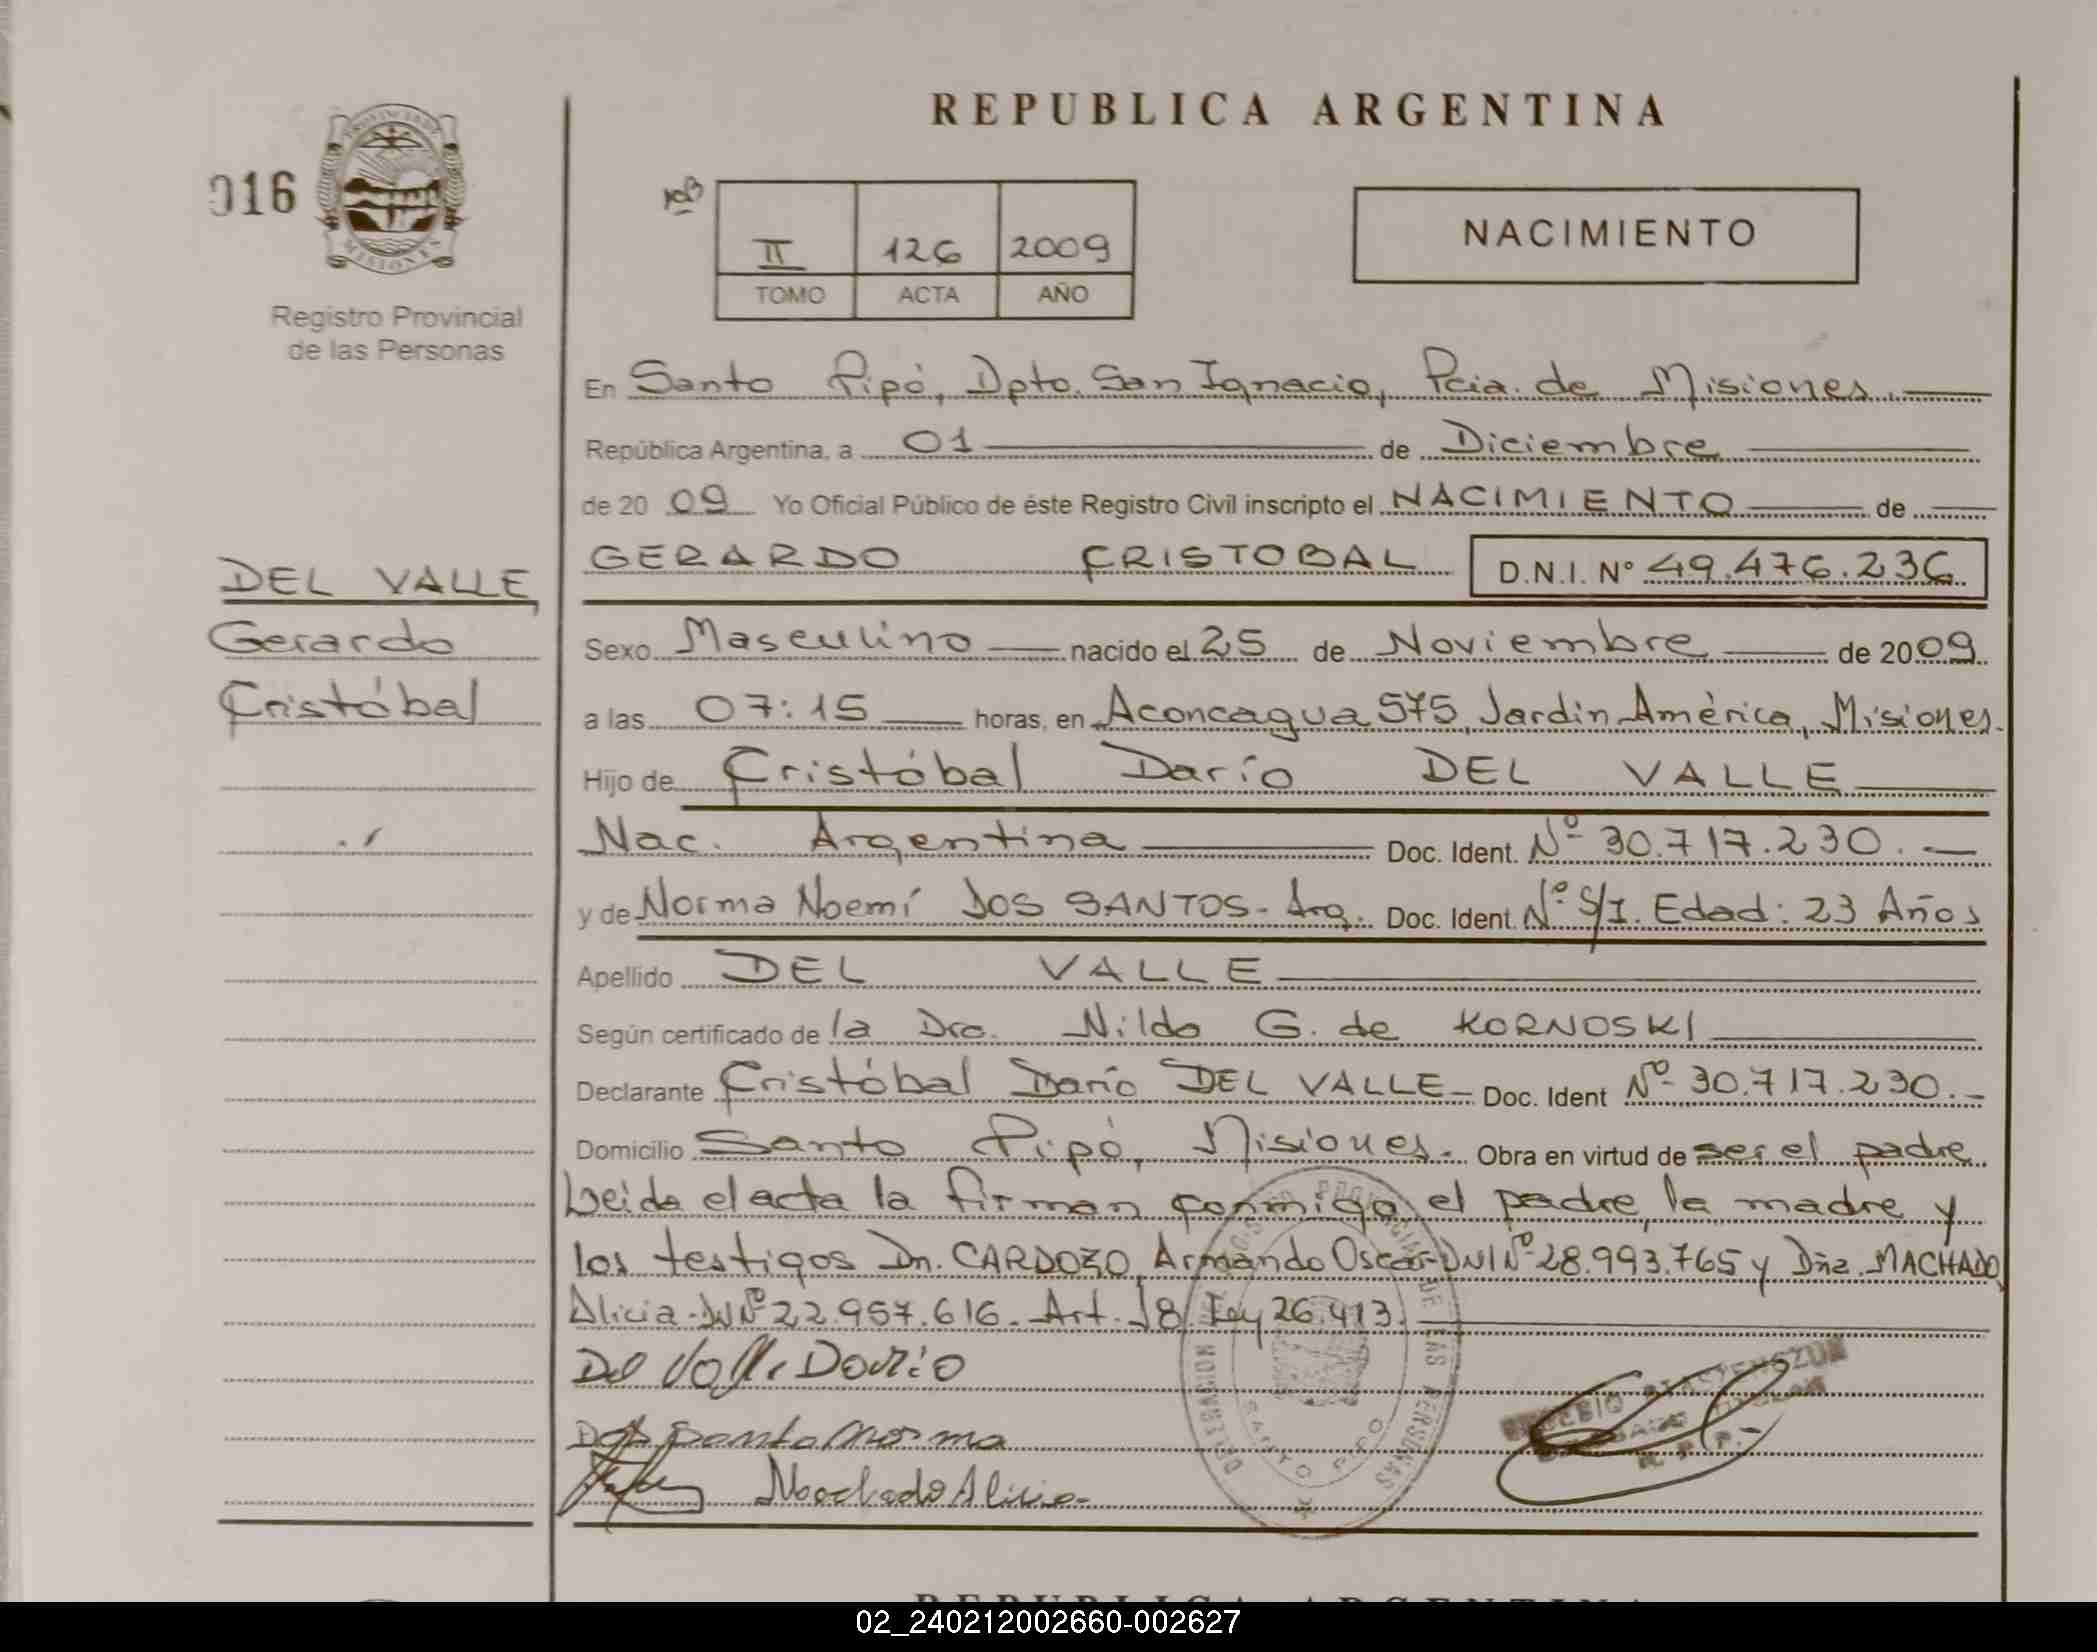 REPUBLICA ARGENTINA
016
PROVINCIA DE
MISIONES
Registro Provincial
de las Personas
II 126 2009
TOMO ACTA AÑO
NACIMIENTO
En Santo Pipó, Dpto. San Ignacio, Pcia. de Misiones.
República Argentina, a 01 de Diciembre
de 20 09 Yo Oficial Público de éste Registro Civil inscripto el NACIMIENTO de
GERARDO CRISTOBAL D.N.I. N° 49.476.236
DEL VALLE
Gerardo
Cristóbal
Sexo Masculino nacido el 25 de Noviembre de 2009
a las 07:15 horas, en Aconcagua 575, Jardín América, Misiones.
Hijo de Cristóbal Darío DEL VALLE
Nac. Argentina Doc. Ident. Nº 30.717.230.-
y de Norma Noemí DOS SANTOS- Arg. Doc. Ident. Nº S/I. Edad: 23 Años
Apellido DEL VALLE
Según certificado de la Dra. Nilda G. de KORNOSKI
Declarante Cristóbal Darío DEL VALLE- Doc. Ident Nº 30.717.230.-
Domicilio Santo Pipó, Misiones. Obra en virtud de ser el padre
Leída el acta la firman conmigo el padre, la madre y
los testigos Dn. CARDOZO, Armando Oscar-DNI Nº 28.993.765 y Dña. MACHADO,
Alicia-DNI Nº 22.957.616. Art. 18 Ley 26.413.
Del Valle Dario
Dos Santo Norma
Machado Alicia
SANTO PIPO
DE LAS PERSONAS
REPUBLICA ARGENTINA
02_240212002660-002627